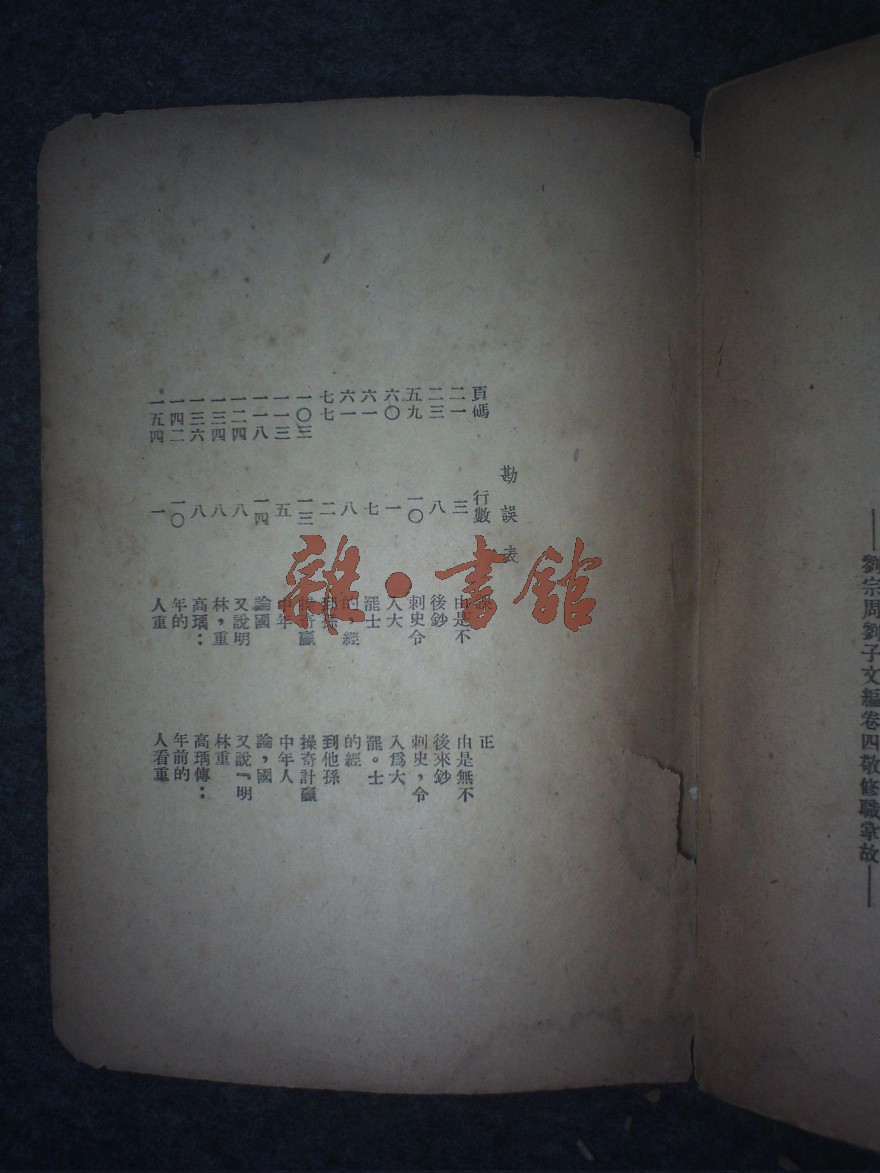 ——劉宗周劉子文編卷四敬修職掌故——
勘誤表
頁碼 行數 誤 正
二一 三 由是不 由是無不
二三 八 後鈔 後來鈔
五九 一〇 刺史令 刺史，令
六〇 一 入大 入爲大
六一 七 罷士 罷。士
六一 八 的，經 的經
七七 二 到孫 到他孫
一〇三 一三 操奇贏 操奇計贏
一一三 五 中年 中年人
一一八 一四 論國 論，國
一二四 八 又說明 又說『明
一三四 八 林，重 林重
一三六 八 高瑀： 高瑀傳：
一四二 一〇 年的 年前的
一五四 一 人重 人看重
雜·書館